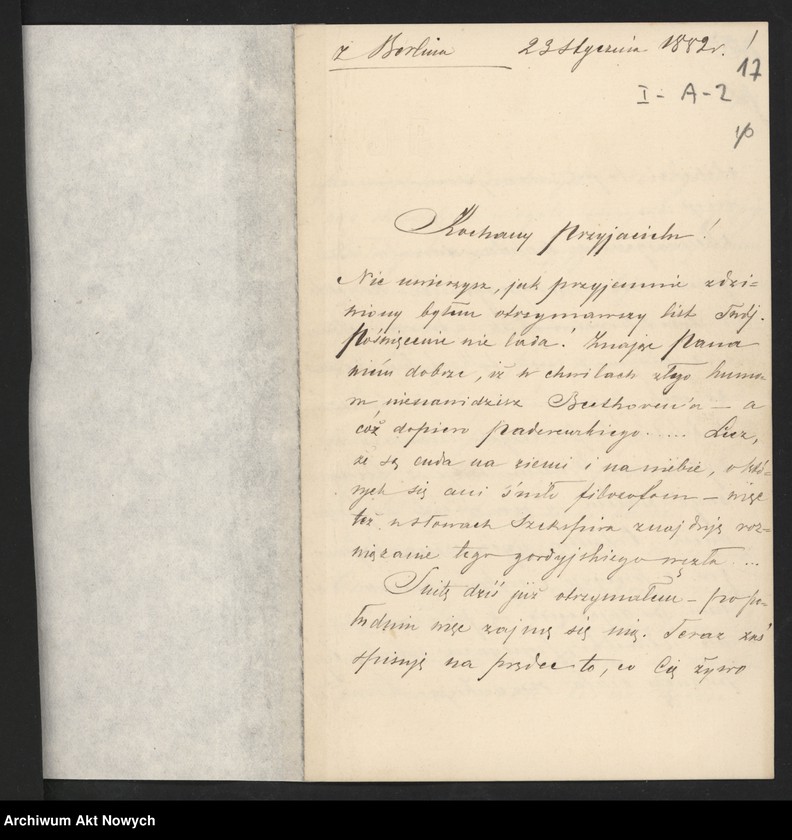 z Berlina 23 stycznia 1882 r. !
17
I - A - 2
Kochany Przyjacielu!
Nie uwierzysz, jak przyjemnie zdzi=
wiony byłem otrzymawszy list Twój.
Poświęcenie nie lada! Znając Pana
wiem dobrze, iż w chwilach złego humo=
ru nienawidzisz Beethoven'a — a
cóż dopiero Paderewskiego..... Lecz,
że są cuda na ziemi i na niebie, o któ=
rych się ani śniło filozofom — więc
też w słowach Szekspira znajduję roz=
wiązanie tego gordyjskiego węzła ...
Suitę dziś już otrzymałem — po po=
łudniu więc zajmę się nią. Teraz zaś
spisuję na prędce to, co Cię żywo
Archiwum Akt Nowych